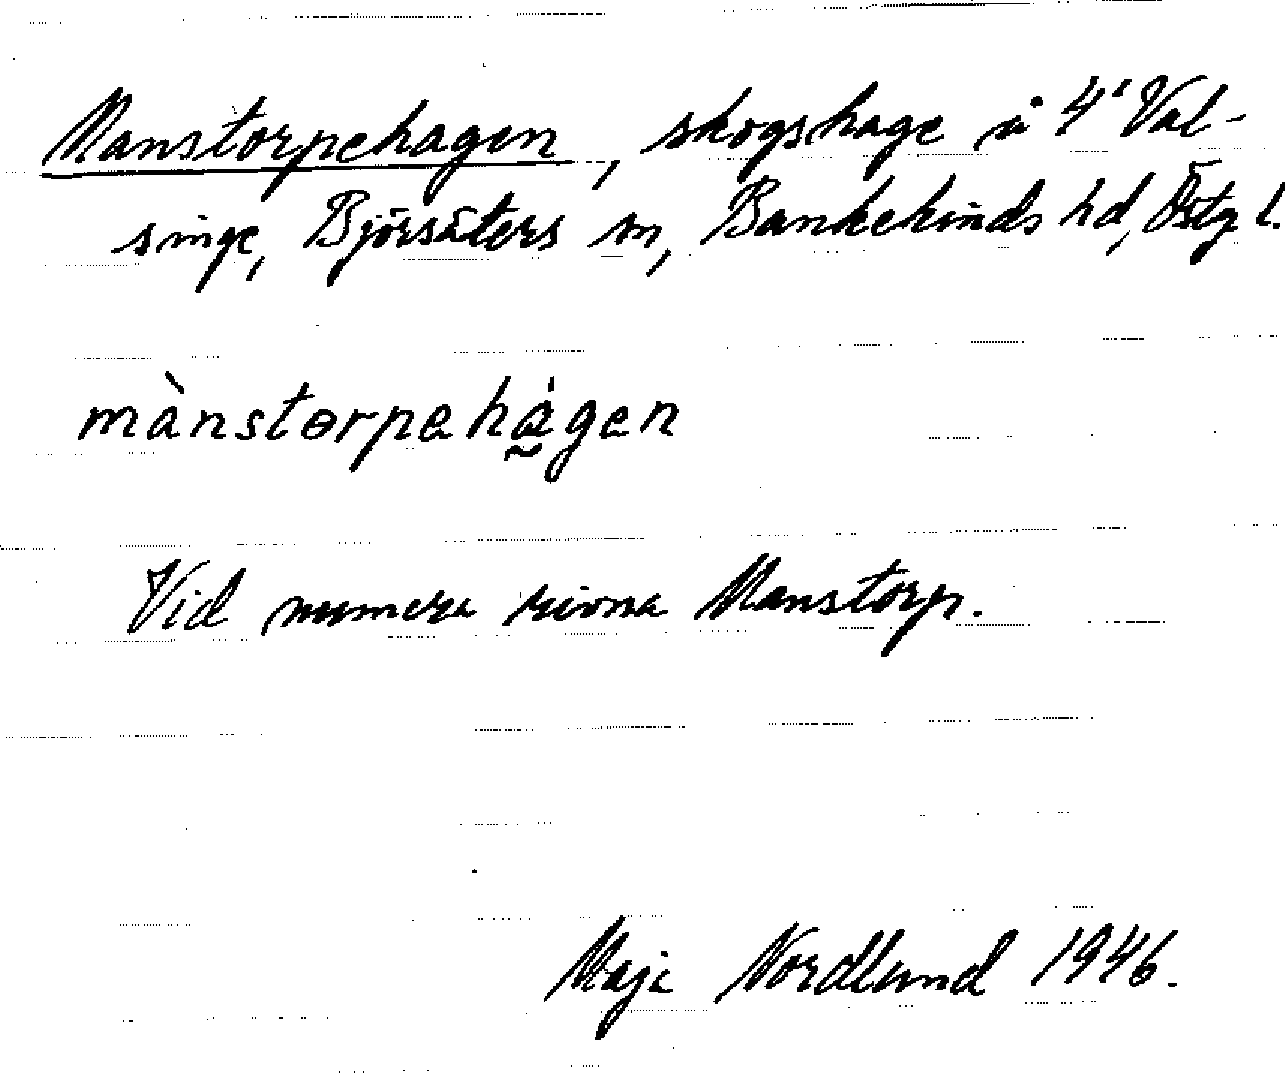 Manstorpehagen, skogshage å 4' Val-
singe, Björsäters sn, Bankekinds hd, Östg l.
mànstɵrpeha̰̍gen
Vid numera rivna Manstorp.
Maja Nordlund 1946.